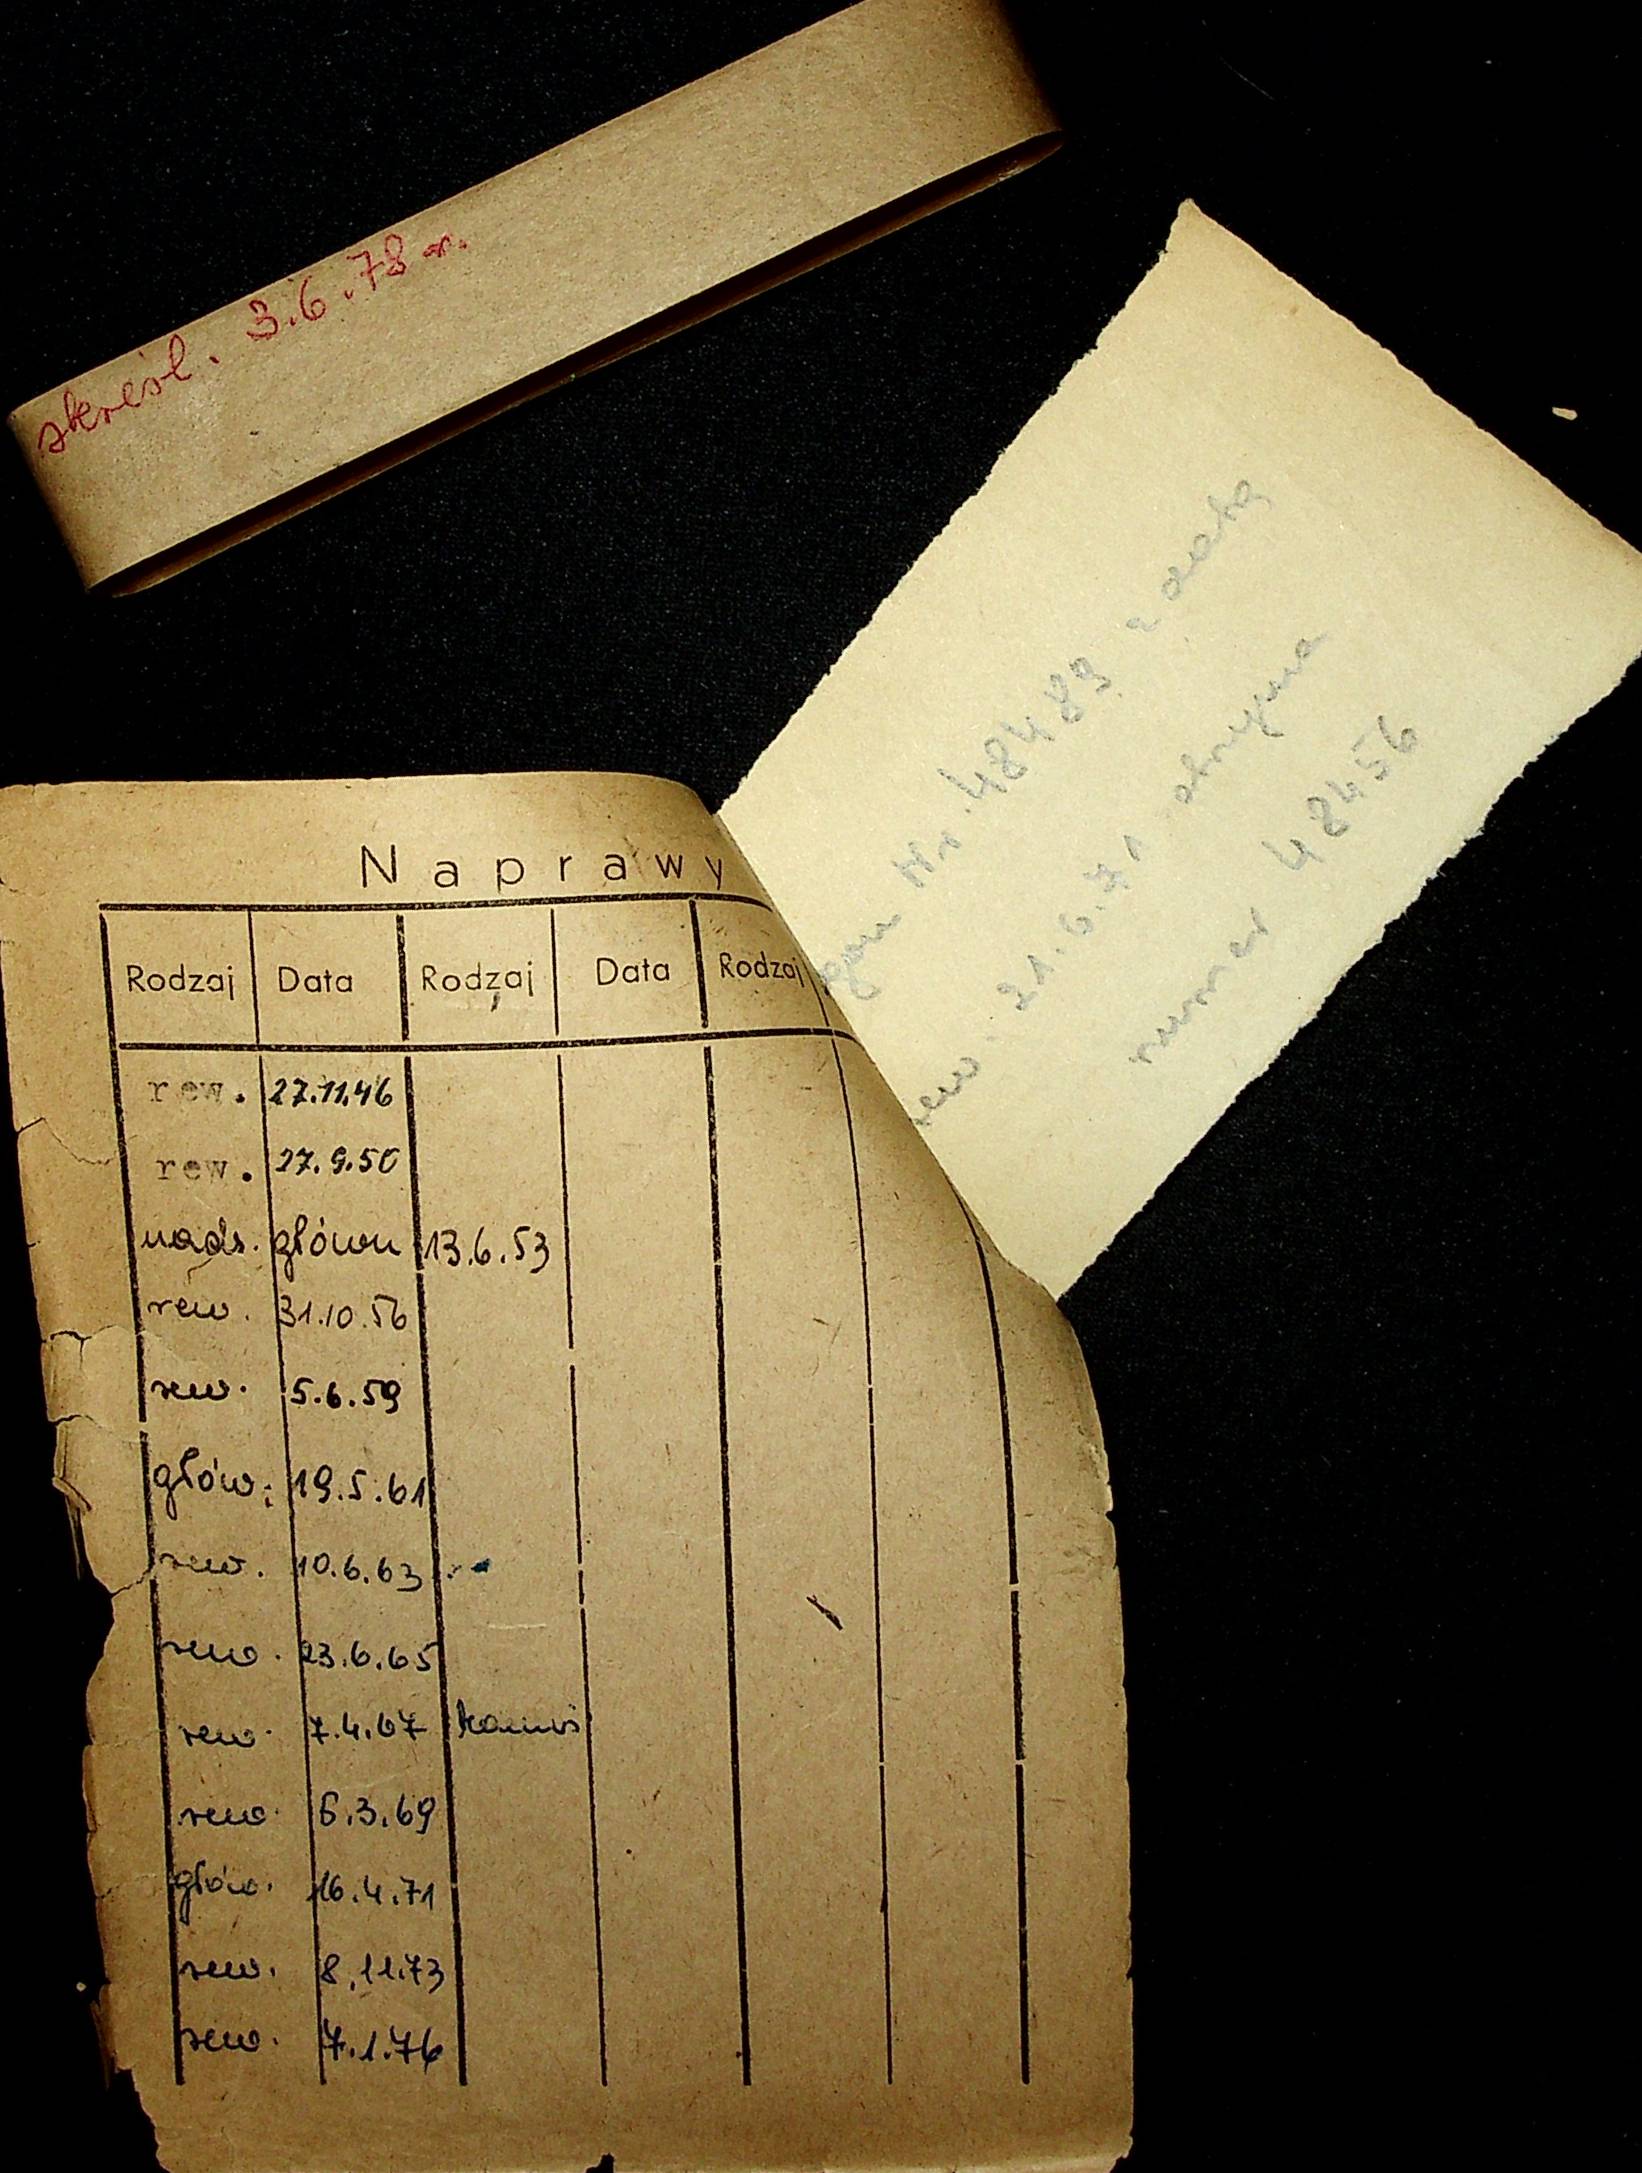 skreśl. 3.6.78 r.
gon Nr. 48483 z datą
rew. 21.6.71 otrzyma
numer 48456
Naprawy
Rodzaj Data Rodzaj Data Rodzaj
rew. 27.11.46
rew. 27.9.50
nads. główn 13.6.53
rew. 31.10.56
rew. 5.6.59
głów. 19.5.61
rew. 10.6.63
rew. 23.6.65
rew. 7.4.67
rew. 6.3.69
głów. 16.4.71
rew. 8.11.73
rew. 7.1.76